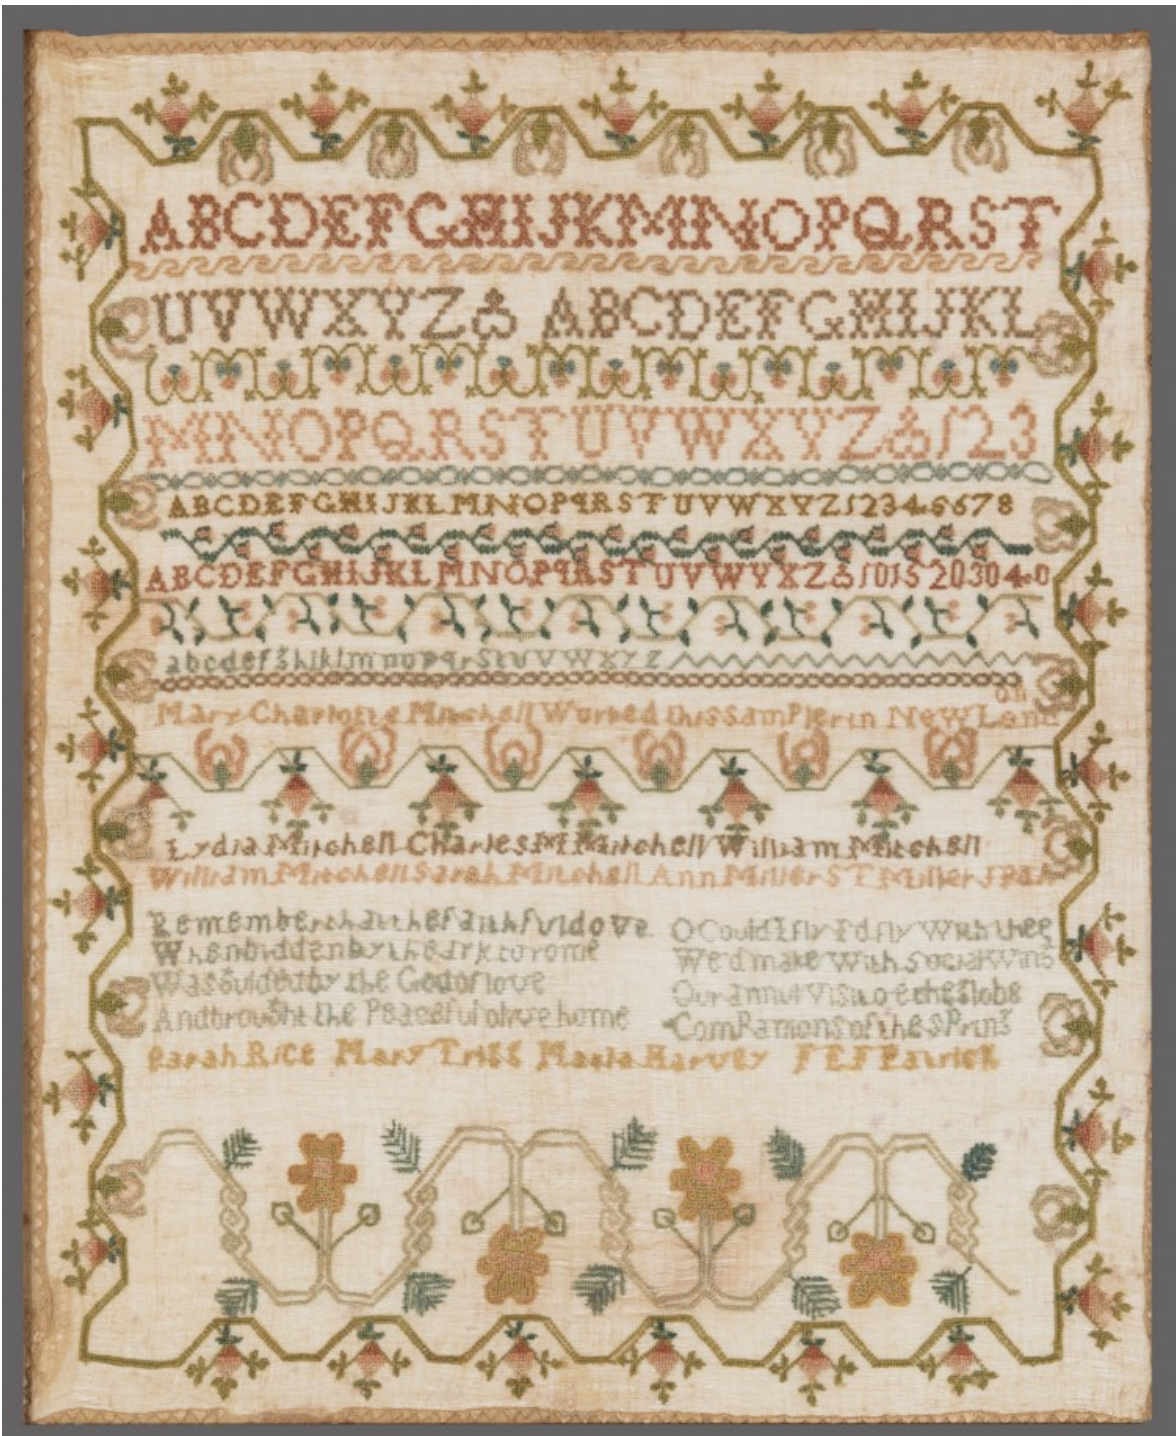 ABCDEFGHIJKMNOPQRST
UVWXYZ& ABCDEFGHIJKL
MNOPQRSTUVWXYZ&123
ABCDEFGHIJKLMNOPqRSTUVWXYZ12345678
ABCDEFGHIJKLMNOPqRSTUVWYXZ&1015203040
abcdefghiklmnopqrstuvwxyz
on
Mary Charlotte Mitchell Worked this sampler in New Lond
Lydia Mitchell Charles M Mitchell William Mitchell
William Mitchell Sarah Mitchell Ann Miller S T Miller
Remember that the faithful dove
When bidden by the ark to rome
Was guided by the God of love
And brought the Peaceful olive home
O Could I fly I'd fly With thee
We'd make With social Wing
Our annul visit oe the globe
Companions of the spring
Sarah Rice Mary Maria Harvey F E F Patrick